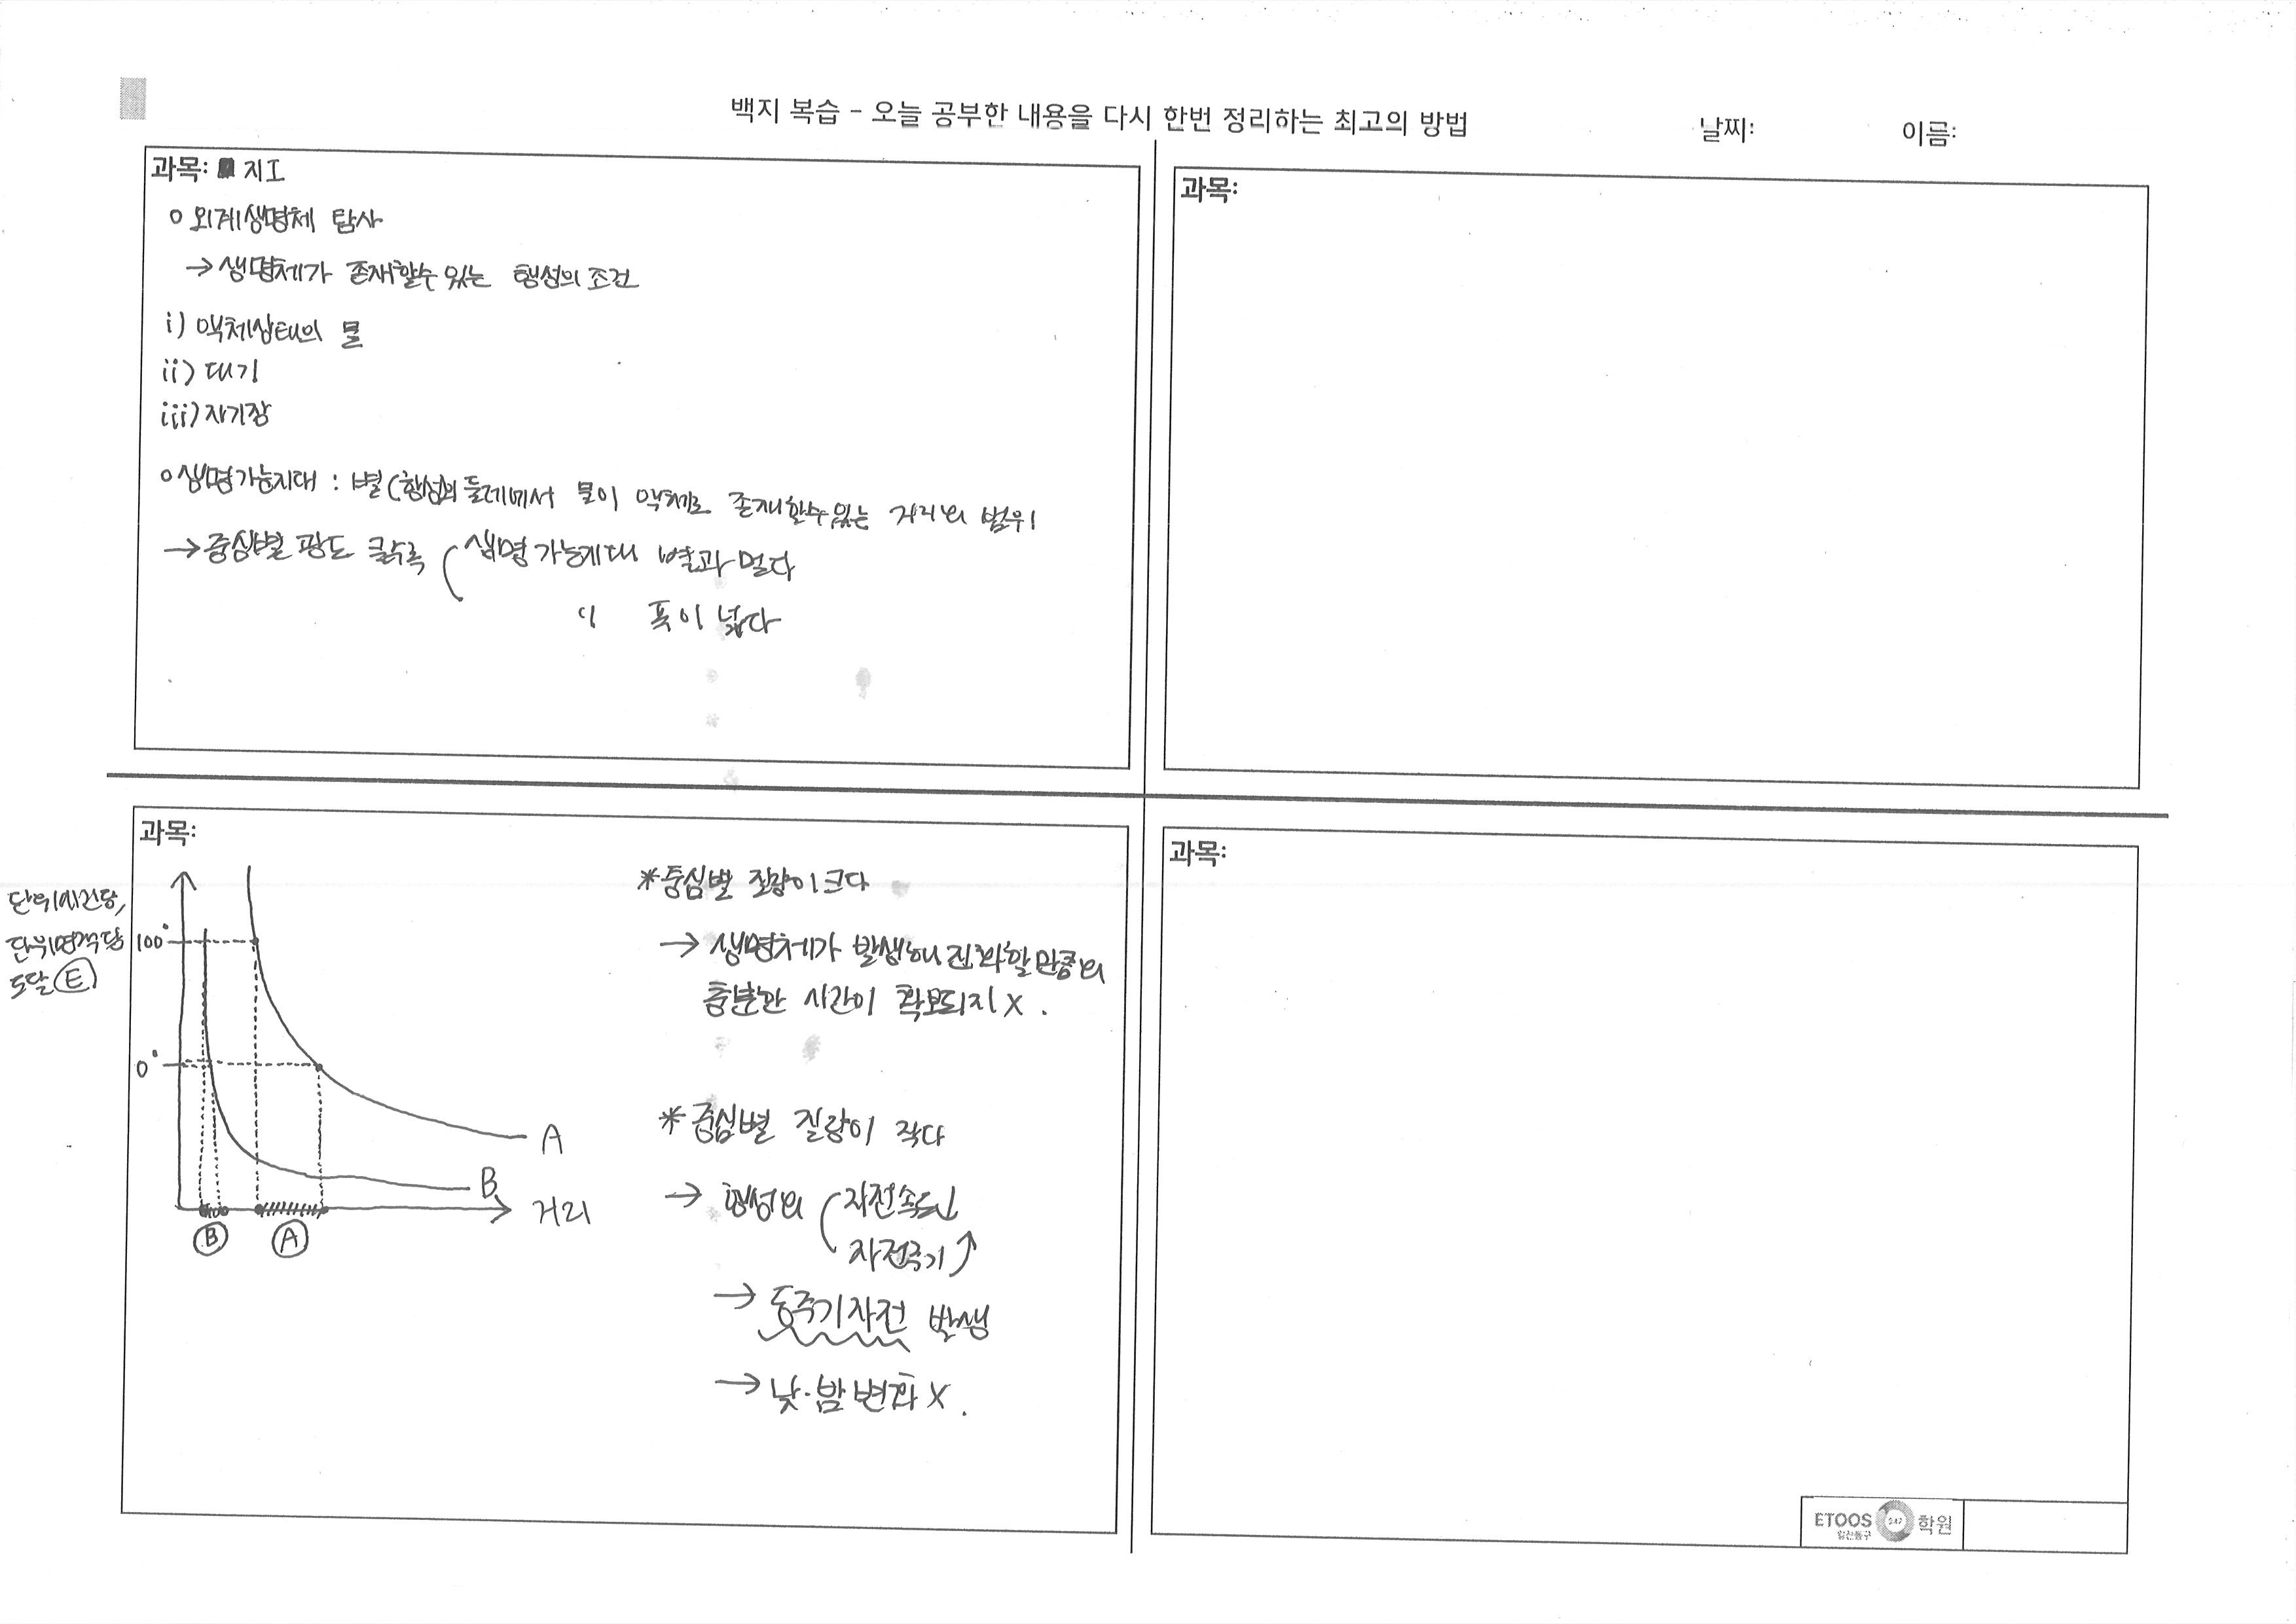 백지 복습 - 오늘 공부한 내용을 다시 한번 정리하는 최고의 방법
날짜:
이름:
과목: 지I
○ 외계생명체 탐사
→ 생명체가 존재할수 있는 행성의 조건
i) 액체상태의 물
ii) 대기
iii) 자기장
○ 생명가능지대 : 별(항성)의 둘레에서 물이 액체로 존재할수 있는 거리의 범위
→ 중심별 광도 클수록 ( 생명가능지대 별과 멀다
〃 폭이 넓다
과목:
과목:
단위시간당,
단위면적당
도달 E
100°
0°
A
B
거리
B
A
*중심별 질량이 크다
→ 생명체가 발생해 진화할만큼의
충분한 시간이 확보되지 X.
*중심별 질량이 작다
→ 행성의 ( 자전속도↓
자전주기↑
→ 동주기자전 발생
→ 낮·밤 변화 X.
과목:
ETOOS 247 학원
일산동구